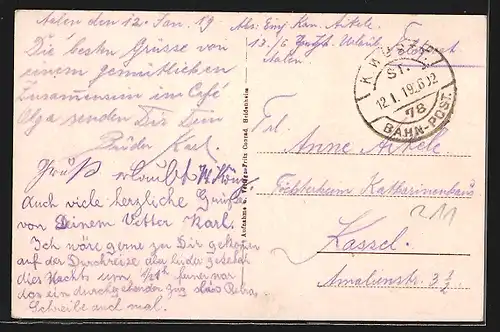 Aalen den 12. Jan. 19
Die besten Grüsse von
einem gemütlichen
Zusammensein im Café
Olga senden Dir Dein
Bruder Karl.
Gruß erlaubt
Auch viele herzliche Grüße
von Deinem Vetter Karl.
Ich wäre gerne zu Dir gekommen
auf der Durchreise aber leider
dies Nachts um
das ein durchgehender Zug
Schreibe auch mal.
Abs: Einj. Kan. Aikele.
Aalen.
Aufnahme u. Verlag Fritz Conrad, Heidenheim
K. WÜRTT.
12.1.19.
78
BAHN-POST.
Frl.
Anne Aikele
Töchterheim Katharinenhaus
211
Kassel.
Amalienstr. 3 1/2